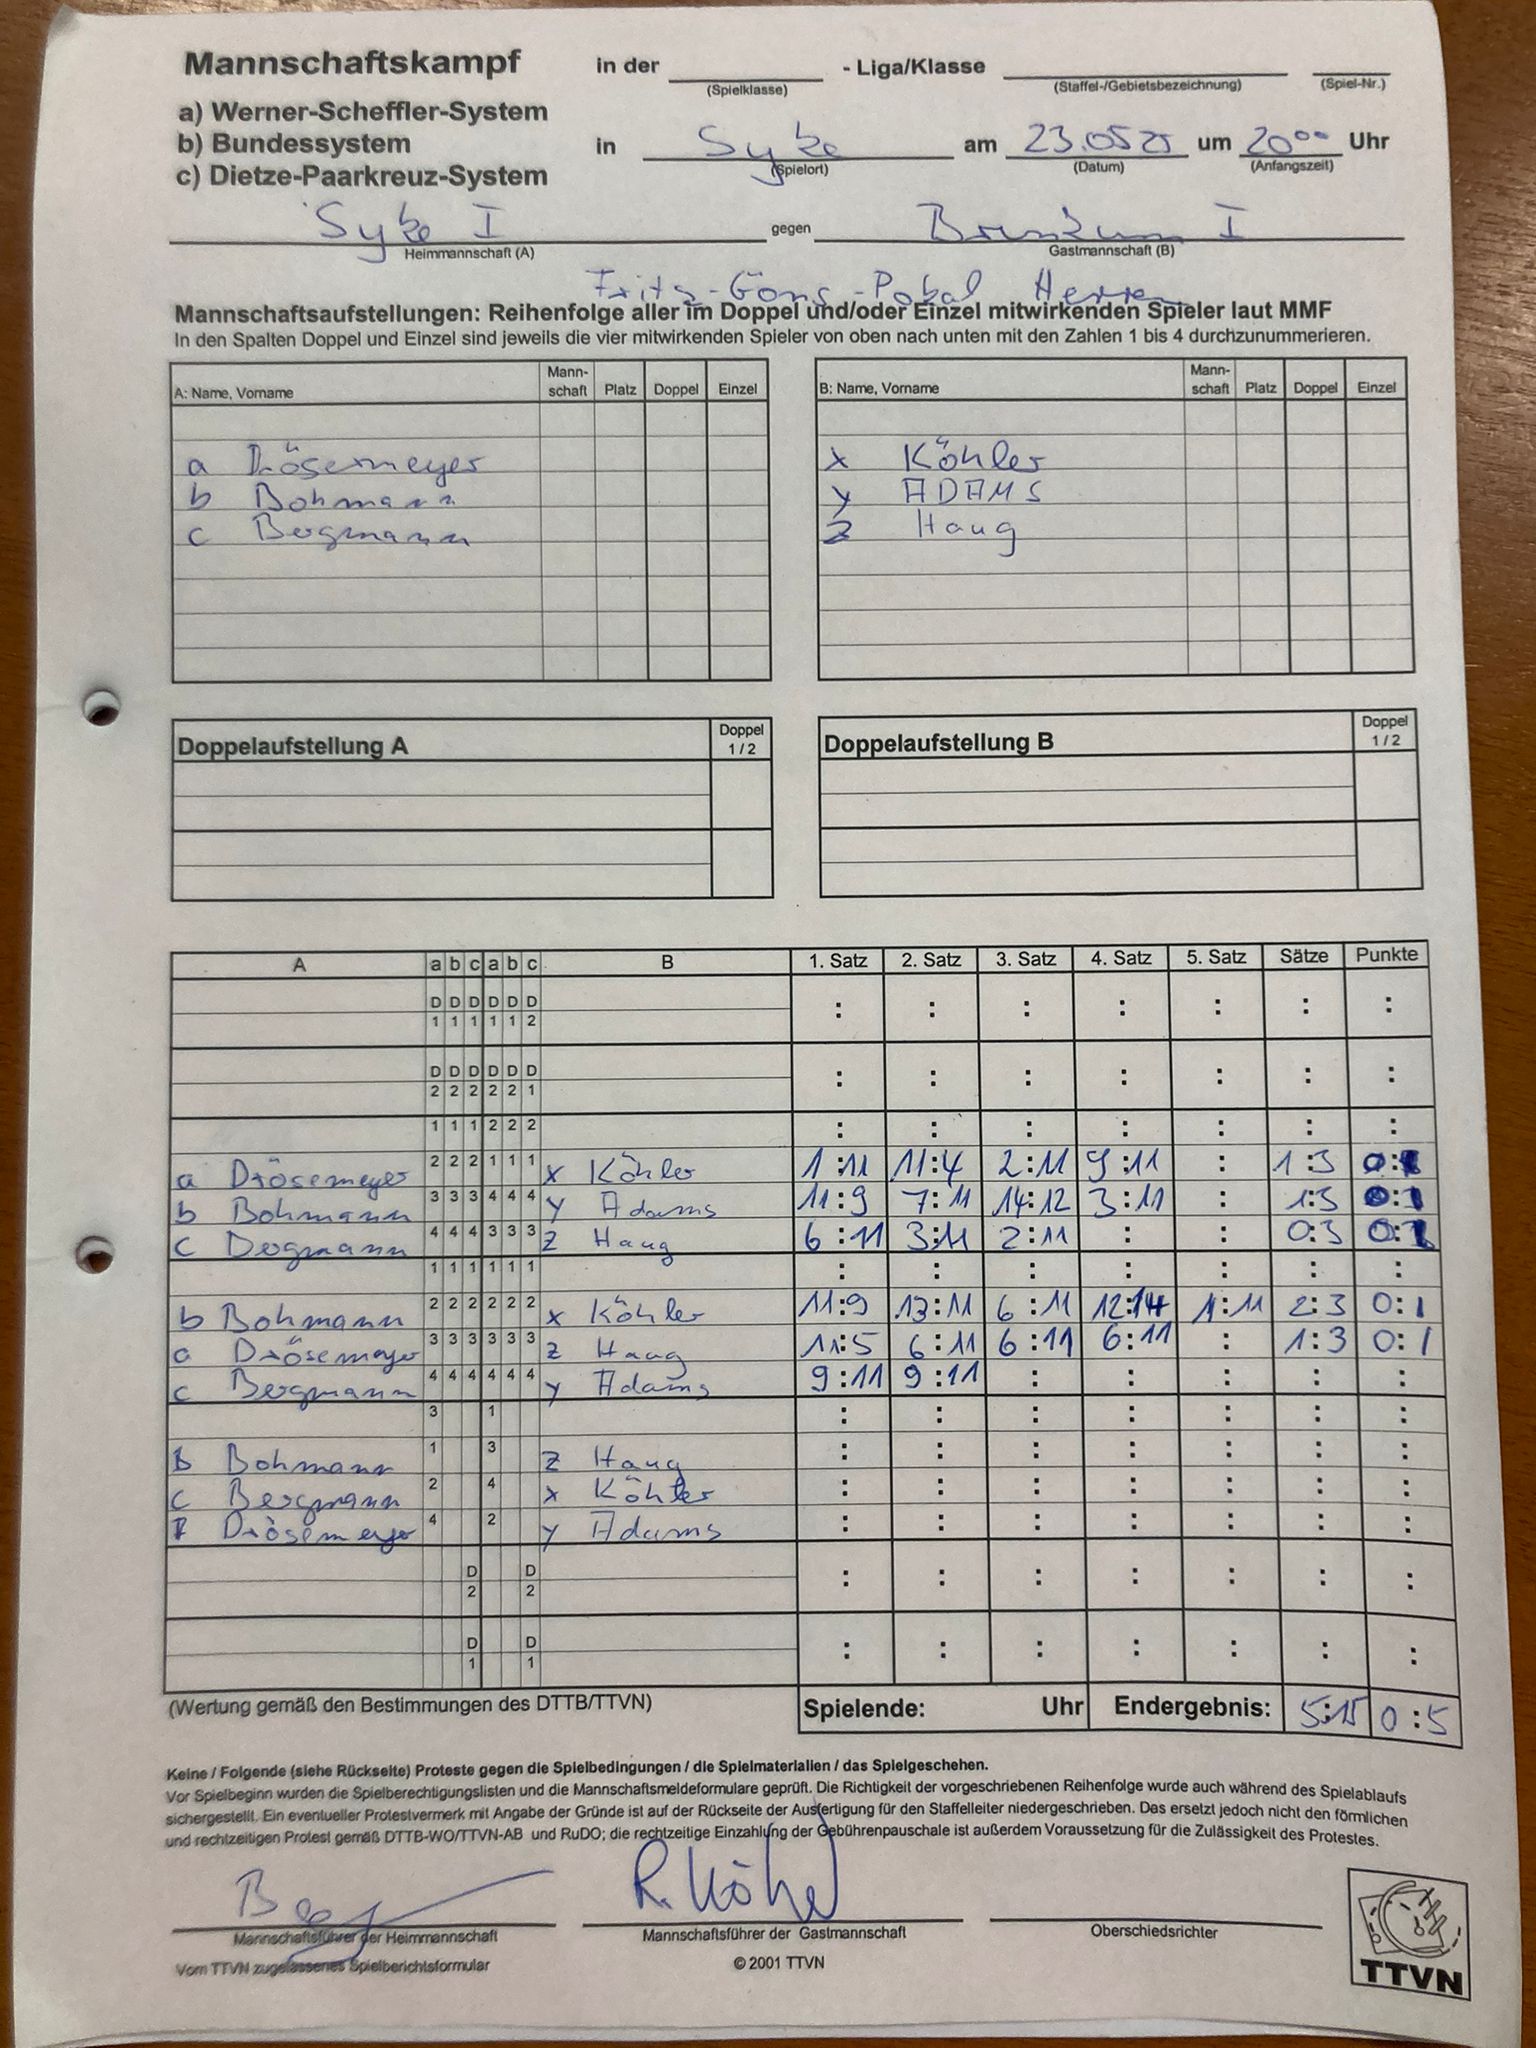 Mannschaftskampf in der - Liga/Klasse
(Spielklasse) (Staffel-/Gebietsbezeichnung) (Spiel-Nr.)
a) Werner-Scheffler-System
b) Bundessystem in Syke am 23.05 25 um 20⁰⁰ Uhr
(Spielort) (Datum) (Anfangszeit)
c) Dietze-Paarkreuz-System
Syke I gegen Brinkum I
Heimmannschaft (A) Gastmannschaft (B)
Fritz-Göns-Pokal Herren
Mannschaftsaufstellungen: Reihenfolge aller im Doppel und/oder Einzel mitwirkenden Spieler laut MMF
In den Spalten Doppel und Einzel sind jeweils die vier mitwirkenden Spieler von oben nach unten mit den Zahlen 1 bis 4 durchzunummerieren.
A: Name, Vorname Mann-schaft Platz Doppel Einzel B: Name, Vorname Mann-schaft Platz Doppel Einzel
a Drösemeyer x Köhler
b Bohmann y ADAMS
c Bergmann z Haug
Doppelaufstellung A Doppel 1 / 2 Doppelaufstellung B Doppel 1 / 2
A a b c a b c B 1. Satz 2. Satz 3. Satz 4. Satz 5. Satz Sätze Punkte
D D D D D D : : : : : : :
1 1 1 1 1 2
D D D D D D : : : : : : :
2 2 2 2 2 1
1 1 1 2 2 2 : : : : : : :
a Drösemeyer 2 2 2 1 1 1 x Köhler 1:11 11:4 2:11 9:11 : 1:3 0:1
b Bohmann 3 3 3 4 4 4 y Adams 11:9 7:11 14:12 3:11 : 1:3 0:1
c Bergmann 4 4 4 3 3 3 z Haug 6:11 3:11 2:11 : : 0:3 0:1
1 1 1 1 1 1 : : : : : : :
b Bohmann 2 2 2 2 2 2 x Köhler 11:9 13:11 6:11 12:14 1:11 2:3 0:1
a Drösemeyer 3 3 3 3 3 3 z Haug 11:5 6:11 6:11 6:11 : 1:3 0:1
c Bergmann 4 4 4 4 4 4 y Adams 9:11 9:11 : : : : :
3 1 : : : : : : :
b Bohmann 1 3 z Haug : : : : : : :
c Bergmann 2 4 x Köhler : : : : : : :
Drösemeyer 4 2 y Adams : : : : : : :
D D : : : : : : :
2 2
D D : : : : : : :
1 1
(Wertung gemäß den Bestimmungen des DTTB/TTVN) Spielende: Uhr Endergebnis: 5:15 0:5
Keine / Folgende (siehe Rückseite) Proteste gegen die Spielbedingungen / die Spielmaterialien / das Spielgeschehen.
Vor Spielbeginn wurden die Spielberechtigungslisten und die Mannschaftsmeldeformulare geprüft. Die Richtigkeit der vorgeschriebenen Reihenfolge wurde auch während des Spielablaufs
sichergestellt. Ein eventueller Protestvermerk mit Angabe der Gründe ist auf der Rückseite der Ausfertigung für den Staffelleiter niedergeschrieben. Das ersetzt jedoch nicht den förmlichen
und rechtzeitigen Protest gemäß DTTB-WO/TTVN-AB und RuDO; die rechtzeitige Einzahlung der Gebührenpauschale ist außerdem Voraussetzung für die Zulässigkeit des Protestes.
R. Köhler
Mannschaftsführer der Heimmannschaft Mannschaftsführer der Gastmannschaft Oberschiedsrichter
Vom TTVN zugelassenes Spielberichtsformular © 2001 TTVN
TTVN